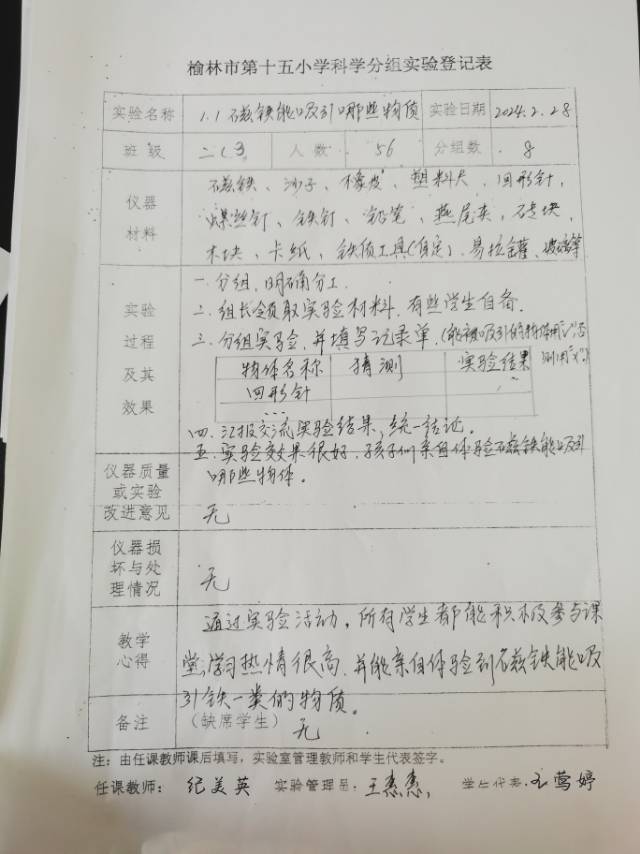 榆林市第十五小学科学分组实验登记表
实验名称 1.1 磁铁能吸引哪些物质 实验日期 2024.2.28
班级 二(3 人数 56 分组数 8
仪器材料 磁铁、沙子、橡皮、塑料尺、回形针,
螺丝钉、铁钉、铅笔、燕尾夹、砖块、
木块、卡纸、铁质工具(自定)、易拉罐、玻璃等
实验过程及其效果 一.分组,明确分工.
二.组长领取实验材料.有些学生自备.
三.分组实验,并填写记录单.(能被吸引的物体用"√"否则用"×")
物体名称 猜测 实验结果
回形针
...
四.汇报交流实验结果,统一结论。
五.实验效果很好.孩子们亲自体验磁铁能吸引
哪些物体.
仪器质量或实验改进意见 无
仪器损坏与处理情况 无
教学心得 通过实验活动,所有学生都能积极参与课
堂,学习热情很高.并能亲自体验到磁铁能吸
引铁一类的物质。
备注 (缺席学生) 无
注:由任课教师课后填写,实验室管理教师和学生代表签字。
任课教师: 纪美英 实验管理员: 学生代表: 莺婷